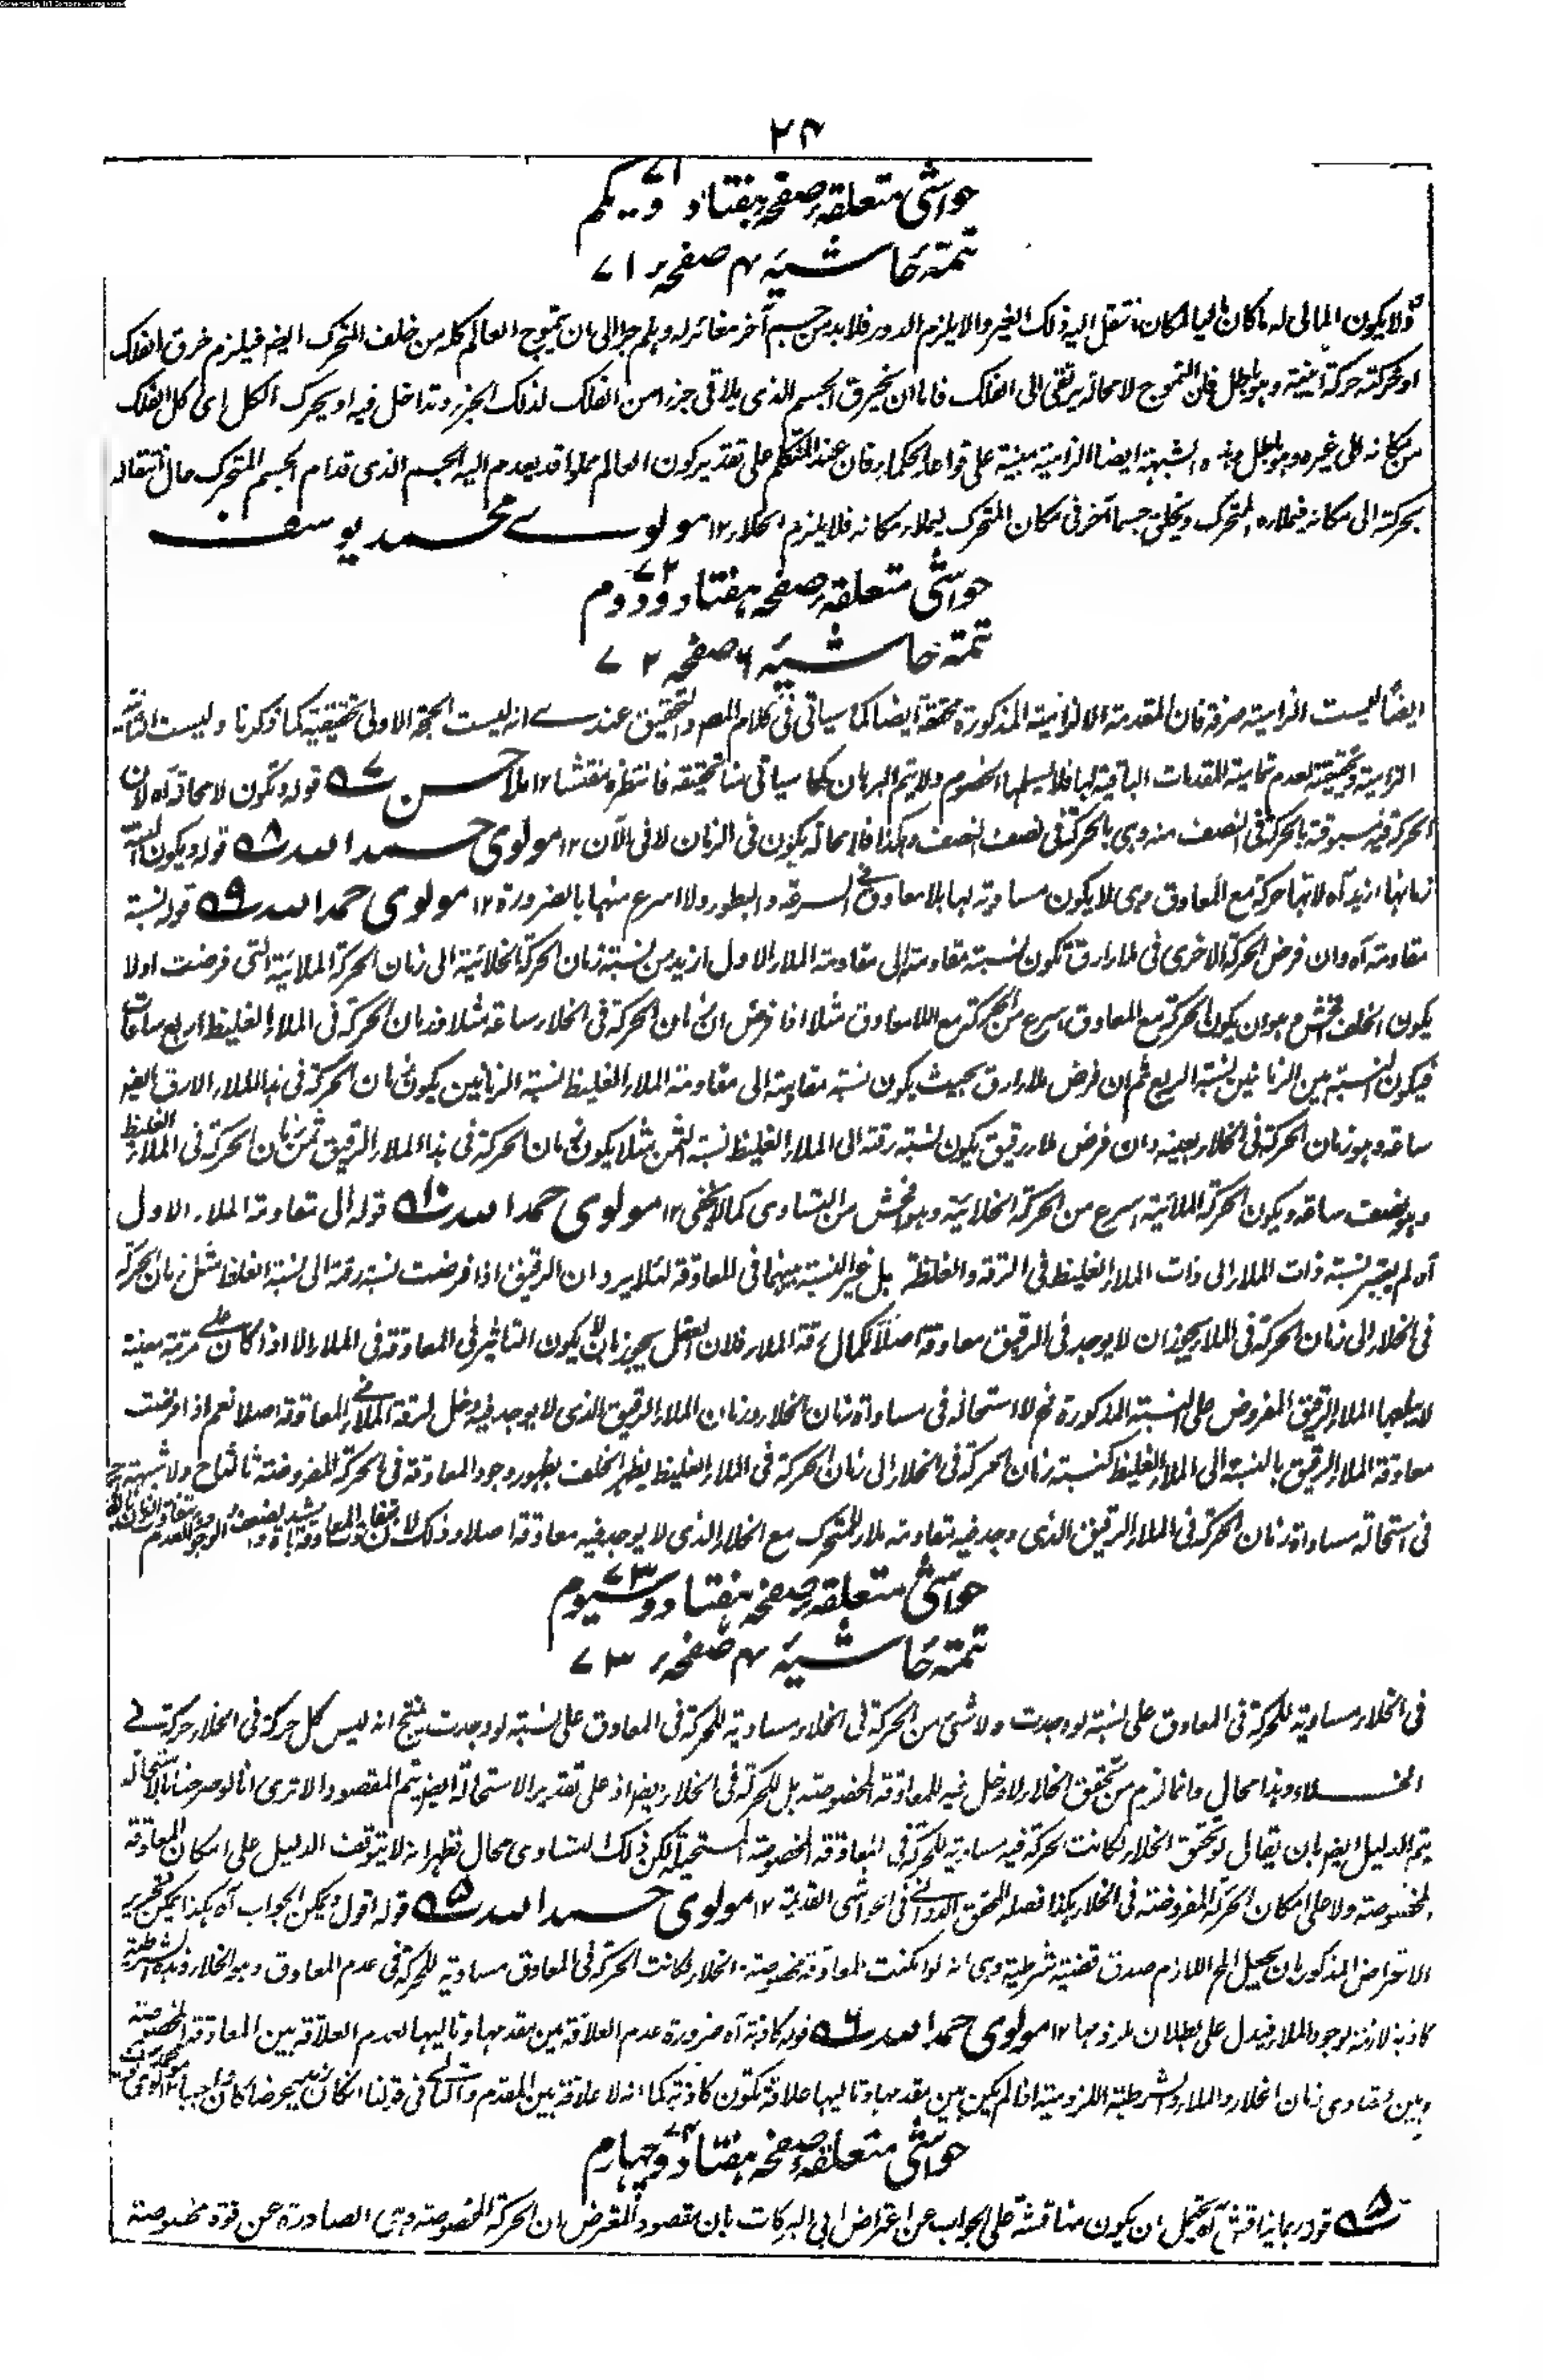 ۲۴
حواشی متعلقہ صفحہ ہفتاد ویکم ۷۱
تتمۃ حاشیۃ ۴ صفحہ ۷۱
ولا یکون المالی لہ ما کان مالیا لمکان انتقل الیہ ذلک الغیر والا یلزم الدور فلابد من جسم آخر مغائر لہ وہلم جرا الی ان یتموج العالم کلہ من خلف المتحرک الیضم فیلزم خرق الفلک
او تحرکتہ حرکۃ اینیۃ وہو باطل فان التموج لا محالۃ یرتقی الی الفلک فاما ان یخرق الجسم الذی یلاقی جزء امن الفلک لذلک الجزء وتداخل فیہ او یحرک الکل ای کل الفلک
من مکانہ الی غیرہ وہو باطل وہذہ الشبہۃ ایضا الزامیۃ مبنیۃ علی قواعد الحکماء فان عند المتکلم علی تقدیر کون العالم مملوا قد یعدم الیہ الجسم الذی قدام الجسم المتحرک حال انتقالہ
بحرکتہ الی مکانہ فیملاءہ المتحرک ویخلق جسما آخر فی مکان المتحرک لیملاء مکانہ فلا یلزم الخلاء ۱۲ مولوی محمد یوسف
حواشی متعلقہ صفحہ ہفتاد ودوم ۷۲
تتمۃ حاشیۃ ۶ صفحہ ۷۲
ایضاً لیست الزامیۃ صرفۃ فان المقدمۃ الالزامیۃ المذکورۃ محققۃ ایضا کما سیاتی فی کلام المصر والتحقیق عندی انہ لیست الحجۃ الاولی تحقیقیۃ کما ذکرنا ولیست الثانیۃ
الزامیۃ وتحقیقیۃ لعدم تمامیۃ المقدمات الباقیۃ لہا فلا یسلمہا الخصوم ولا یتم البرہان کما سیاتی منا تحقیقہ فانتظرہ مفتشا ۱۲ ملا حسن ۷ قولہ وتکون لا محالۃ آہ لان
الحرکۃ فیہ مسبوقۃ بالحرکۃ فی النصف منہ وہی بالحرکۃ فی نصف النصف وہکذا فلا محالۃ یکون فی الزمان لا فی الآن ۱۲ مولوی حمد اللہ ۸ قولہ ویکون
زمانہا ازید آہ لانہا حرکۃ مع المعاوق وہی لا یکون مساویۃ لہا بلا معاوق فی السرعۃ والبطوء ولا اسرع منہا بالضرورۃ ۱۲ مولوی حمد اللہ ۹ قولہ نسبۃ
مقاومتہ آہ وان فرض الحرکۃ الاخری فی ملاء ارق تکون نسبۃ مقاومتہ الی مقاومۃ الملاء الاول ازید من نسبۃ زمان الحرکۃ الخلائیۃ الی زمان الحرکۃ الملائیۃ التی فرضت اولا
یکون الخلف افحش وہو ان یکون الحرکۃ مع المعاوق اسرع من الحرکۃ مع اللامعاوق مثلا اذا فرض ان زمان الحرکۃ فی الخلاء ساعۃ مثلا فزمان الحرکۃ فی الملاء الغلیظ اربع ساعات
فیکون النسبۃ بین الزمانین نسبۃ الربع ثم ان فرض ملاء ارق بحیث یکون نسبۃ مقاومتہ الی مقاومۃ الملاء الغلیظ نسبۃ الزمانین یکون زمان الحرکۃ فی ہذا الملاء الارق ایضو
ساعۃ وہو زمان الحرکۃ فی الخلاء بعینہ وان فرض ملاء رقیق یکون نسبۃ رقتہ الی الملاء الغلیظ نسبۃ الثمن مثلا یکون زمان الحرکۃ فی ہذا الملاء الرقیق ثمن زمان الحرکۃ فی الملاء الغلیظ
وہو نصف ساعۃ ویکون الحرکۃ الملائیۃ اسرع من الحرکۃ الخلائیۃ وہو افحش من التساوی کما لا یخفی ۱۲ مولوی حمد اللہ ۱۰ قولہ الی مقاومۃ الملاء الاول
آہ لم یعتبر نسبۃ ذات الملاء الی ذات الملاء الغلیظ فی الرقۃ والغلظۃ بل عبر النسبۃ بینہما فی المعاوقۃ لئلا یرد ان الرقیق اذا فرضت نسبۃ رقتہ الی نسبۃ الغلظ مثل زمان الحرکۃ
فی الخلاء الی زمان الحرکۃ فی الملاء یجوز ان لا یوجد فی الرقیق معاوقۃ اصلاً لکمال رقۃ الملاء فلان العقل یجوز ان لا یکون التاثیر فی المعاوقۃ فی الملاء الا اذا کان علی مرتبۃ معینۃ
لا یبلغہا الملاء الرقیق المفروض علی النسبۃ المذکورۃ فح لا استحالۃ فی مساواۃ زمان الخلاء وزمان الملاء الرقیق الذی لا یوجد فیہ دخل لرقۃ الملاء فی المعاوقۃ اصلا نعم اذا فرضت
معاوقۃ الملاء الرقیق بالنسبۃ الی الملاء الغلیظ کنسبۃ زمان الحرکۃ فی الخلاء الی زمان الحرکۃ فی الملاء الغلیظ یظہر الخلف بظہور وجود المعاوقۃ فی الحرکۃ المفروضۃ ثالثا ح ولا شبہۃ ح
فی استحالۃ مساواۃ زمان الحرکۃ فی الملاء الرقیق الذی وجد فیہ مقاومۃ ملاء للمتحرک مع الخلاء الذی لا یوجد فیہ معاوقۃ اصلا وذلک لان
حواشی متعلقہ صفحہ ہفتاد وسیوم ۷۳
تتمۃ حاشیۃ ۴ صفحہ ۷۳
فی الخلاء مساویۃ للحرکۃ فی المعاوق علی نسبۃ لو وجدت ولا شئ من الحرکۃ فی الخلاء مساویۃ للحرکۃ فی المعاوق علی نسبۃ لو وجدت ینتج انہ لیس کل حرکۃ فی الخلاء حرکۃ فی
الخلاء وہذا محال وانما لزم من تحقق الخلاء لا دخل فیہ للمعاوقۃ المخصوصۃ بل للحرکۃ فی الخلاء ایضو اذ علی تقدیر الاستحالۃ ایضو یتم المقصود الا تری انا لو صرحنا بالاستحالۃ
یتم الدلیل ایضو بان یقال لو تحقق الخلاء لکانت الحرکۃ فیہ مساویۃ للحرکۃ فی المعاوقۃ المخصوصۃ المستحیلۃ لکن ذلک التساوی محال فظہر انہ لا یتوقف الدلیل علی امکان المعاوقۃ
المخصوصۃ ولا علی امکان الحرکۃ المفروضۃ فی الخلاء ہکذا فصلہ المحقق الدوانی فی الحواشی القدیمۃ ۱۲ مولوی حمد اللہ ۵ قولہ اقول ویمکن الجواب آہ ہکذا یمکن تحریر
الاعتراض المذکور بان یجعل المح اللازم صدق قضیۃ شرطیۃ وہی انہ لو امکنت المعاوقۃ مخصوصۃ الخلاء لکانت الحرکۃ فی المعاوق مساویۃ للحرکۃ فی عدم المعاوق وہو الخلاء وہذہ الشرطیۃ
کاذبۃ لازمۃ لوجود الملاء فیدل علی بطلان ملزومہا ۱۲ مولوی حمد اللہ ۶ قولہ کاذبۃ آہ ضرورۃ عدم العلاقۃ بین مقدمہا وتالیہا لعدم العلاقۃ بین المعاوقۃ المخصوصۃ
وبین تساوی زمان الخلاء والملاء والشرطیۃ اللزومیۃ اذا لم یکن بین مقدمہا وتالیہا علاقۃ تکون کاذبۃ کما انہ لا علاقۃ بین المقدم والتالی فی قولنا
حواشی متعلقہ صفحہ ہفتاد وچہارم ۷۴
۵ قولہ ربما یناقش آہ یحتمل ان یکون مناقشۃ علی الجواب عن اعتراض ابی البرکات بان مقصود المعترض ان الحرکۃ المخصوصۃ وہی الصادرۃ عن قوۃ مخصوصۃ